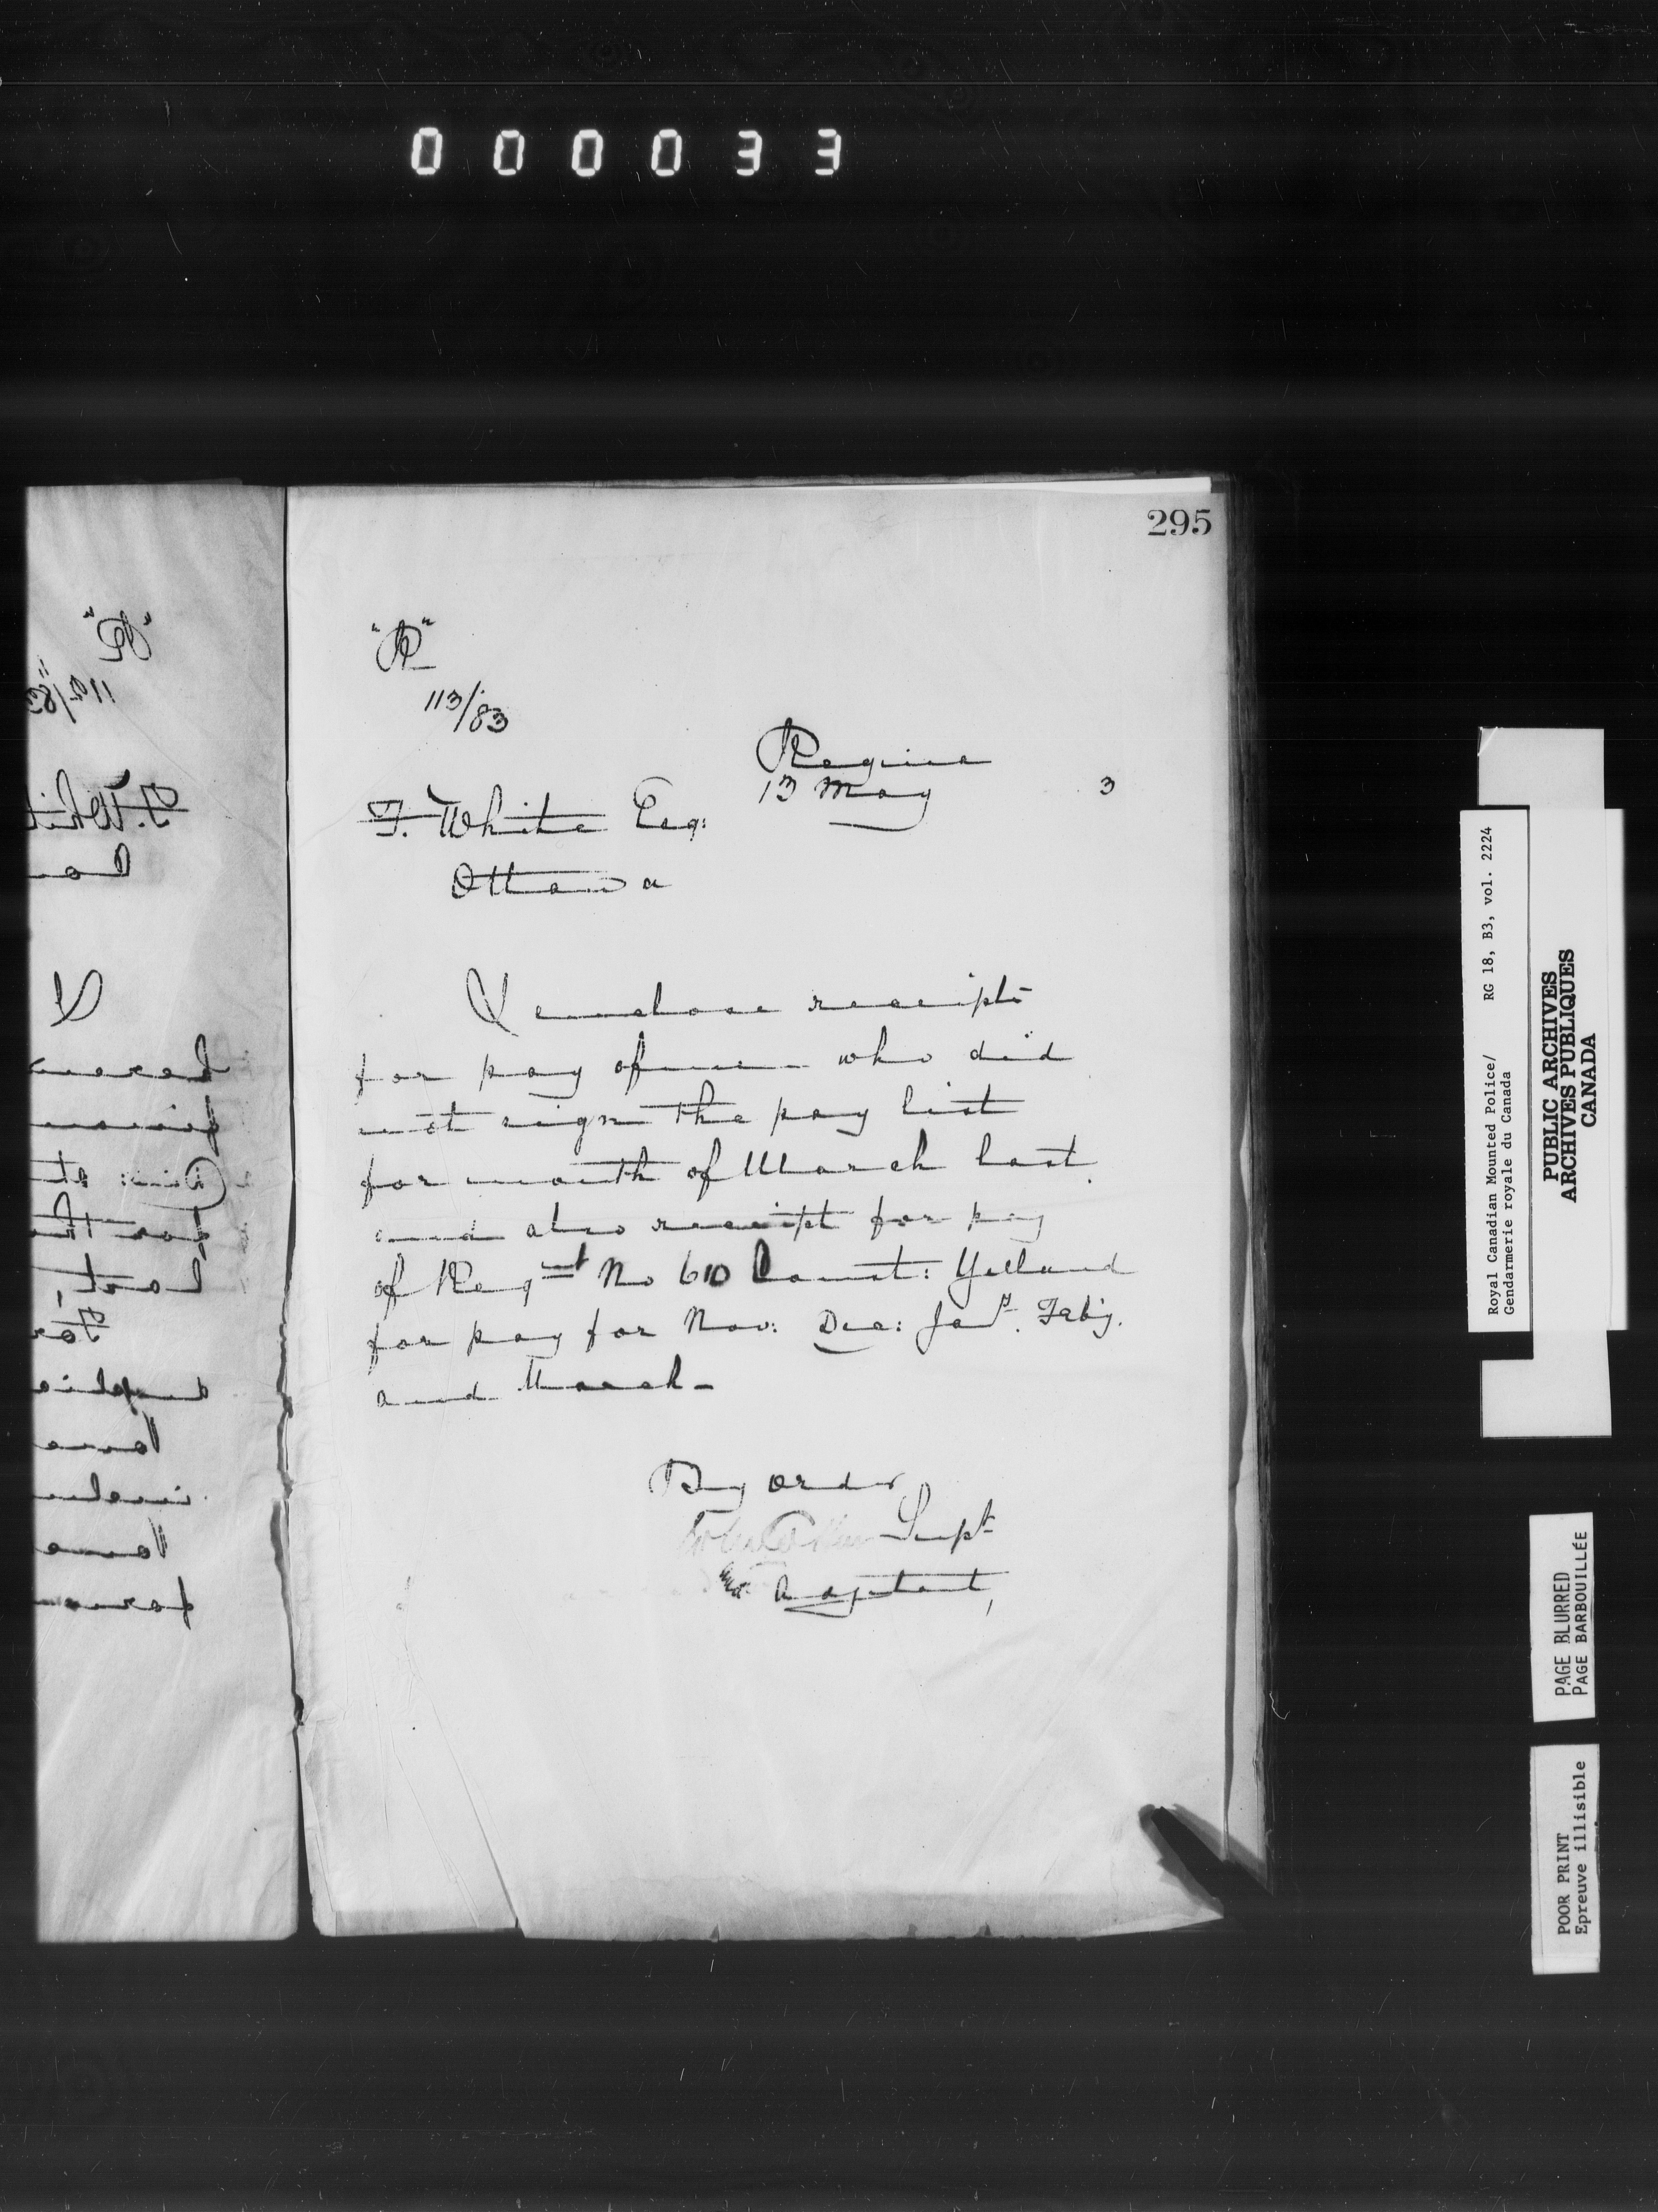 000033
295
"A"
113/83
Regina
13 May 3
F. White Esq:
Ottawa
I enclose receipts
for pay of men who did
not sign the pay list
for month of March last.
and also receipt for pay
of Regmt No 610 Const: Yelland
for pay for Nov: Dec: Jany. Feby.
and March -
By order
Supt
Adjutant,
Royal Canadian Mounted Police/ RG 18, B3, vol. 2224
Gendarmerie royale du Canada
PUBLIC ARCHIVES
ARCHIVES PUBLIQUES
CANADA
PAGE BLURRED
PAGE BARBOUILLÉE
POOR PRINT
Epreuve illisible